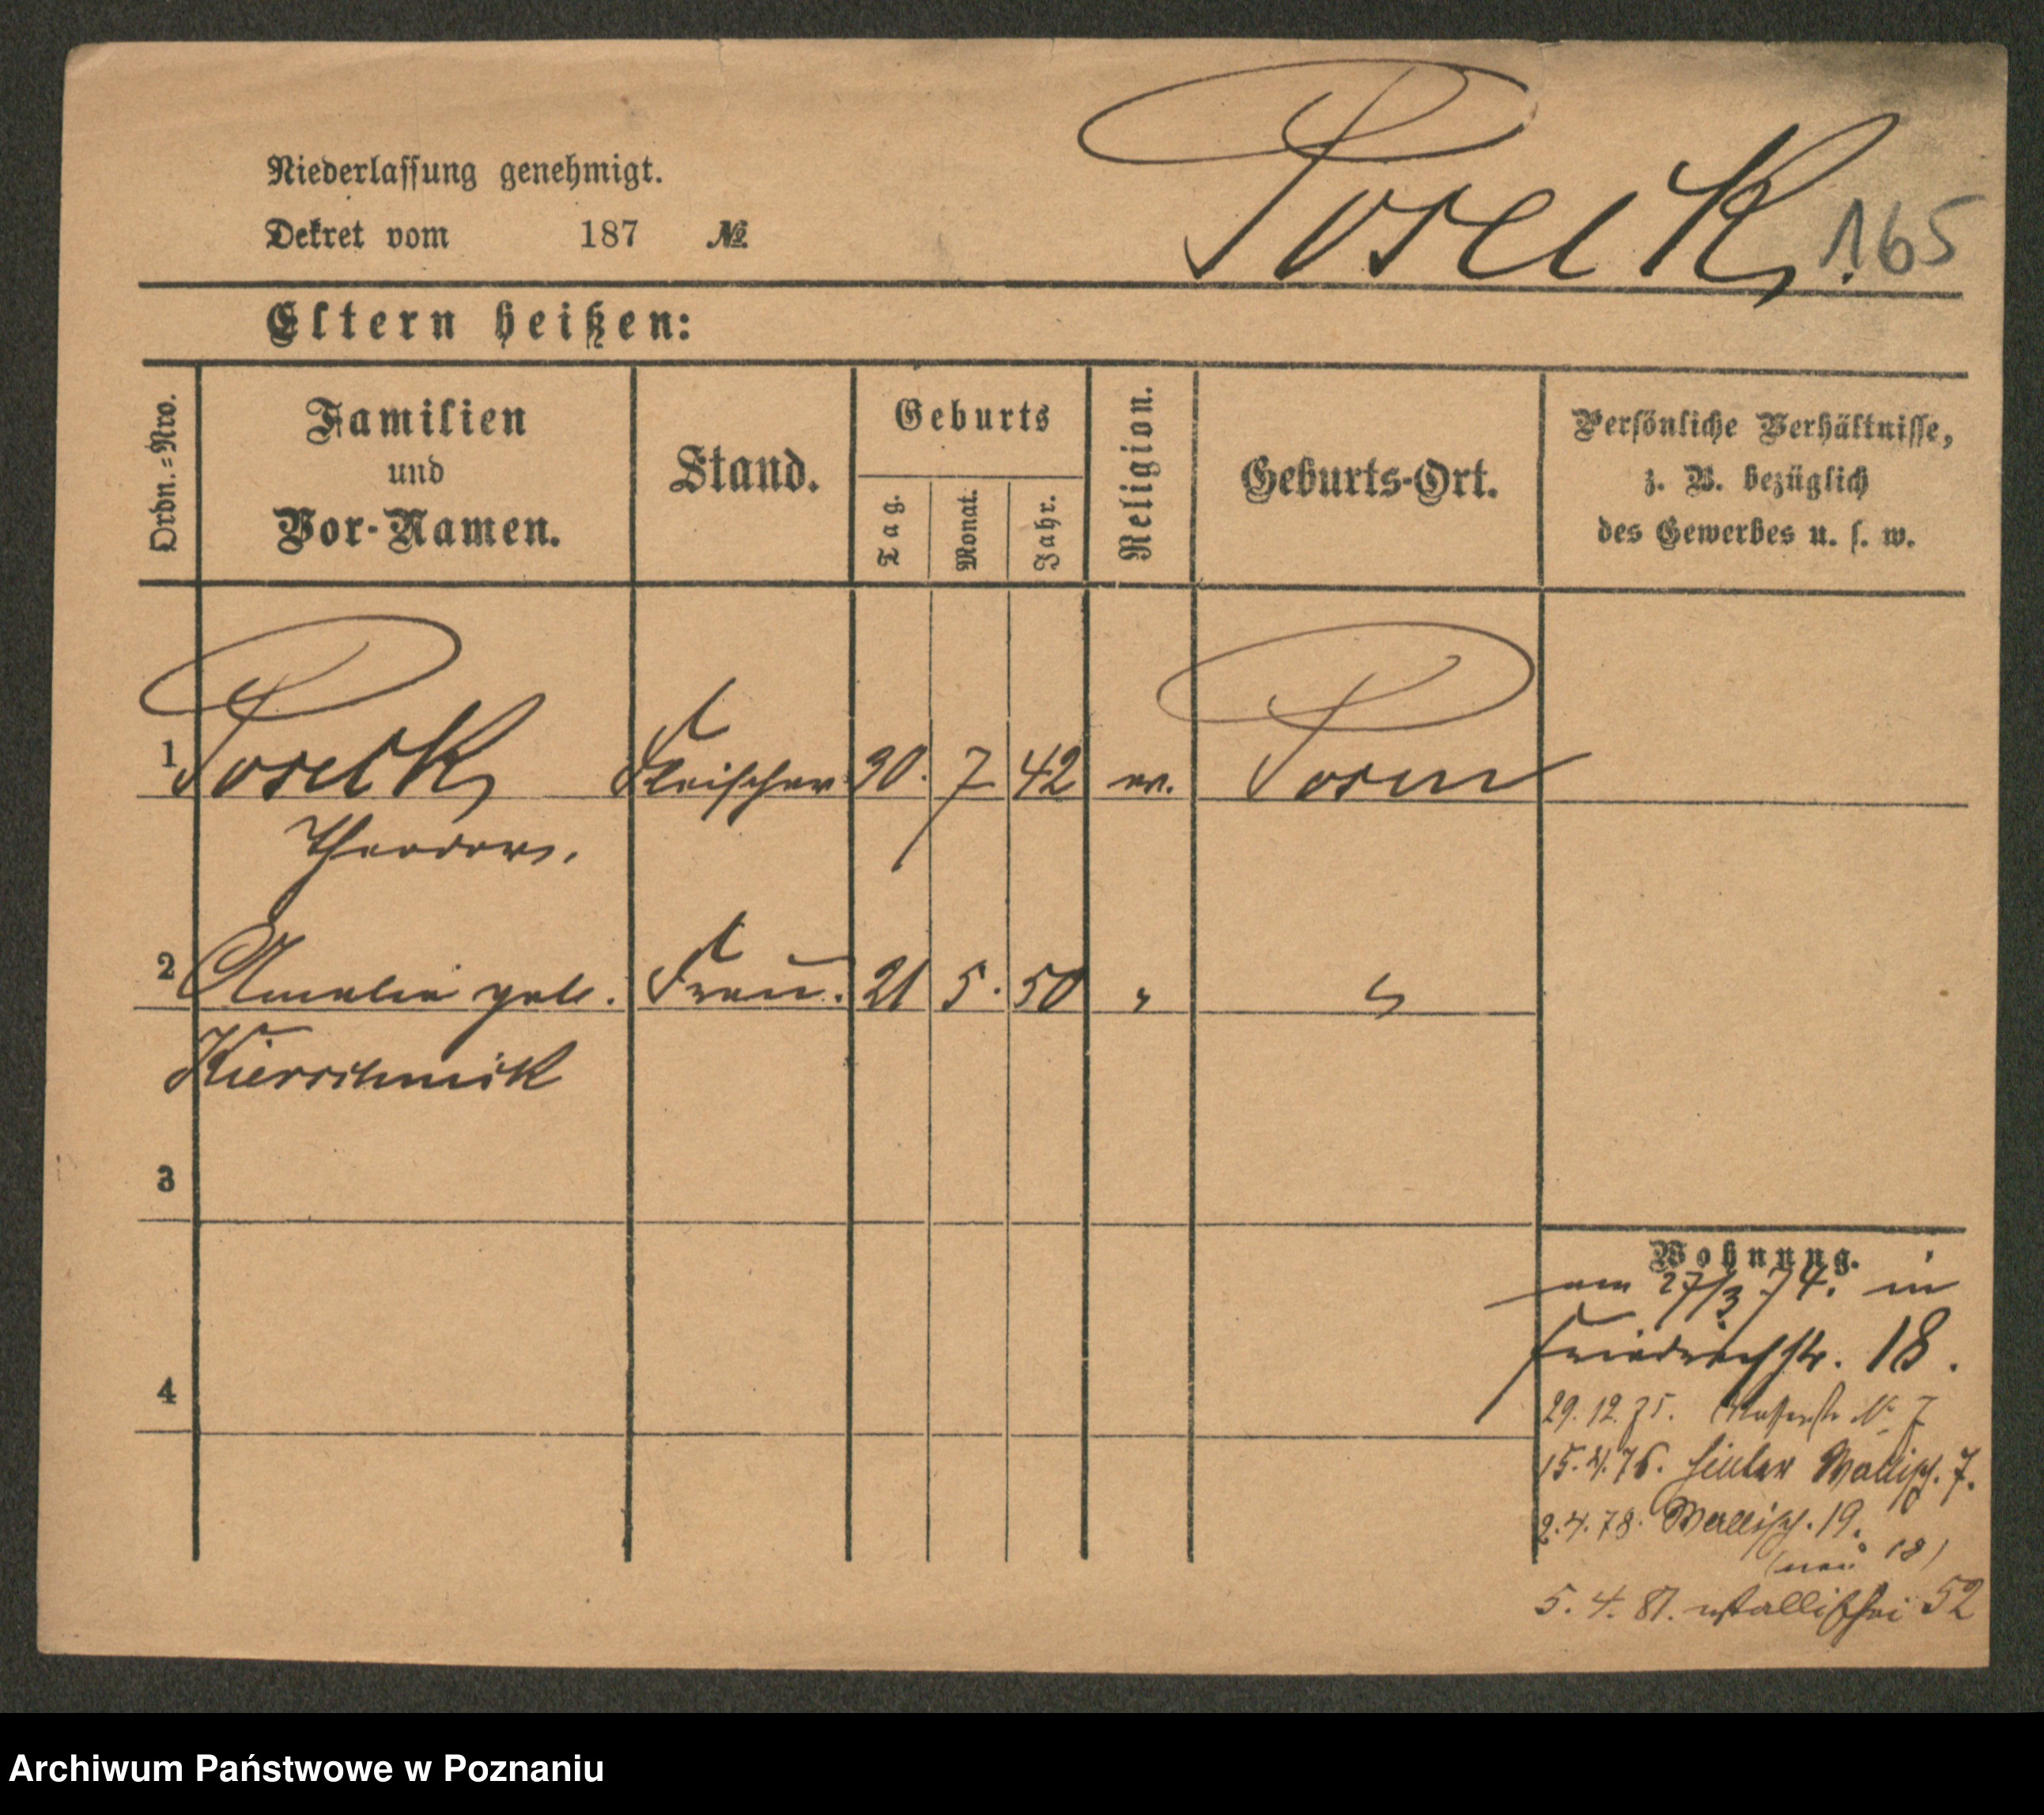 Niederlassung genehmigt.
Dekret vom 187 №
Poseck. 165
Eltern heißen:
Ordn.=Nro.
Familien
und
Vor-Namen.
Stand.
Geburts
Tag.
Monat.
Jahr.
Religion.
Geburts-Ort.
Persönliche Verhältnisse,
z. B. bezüglich
des Gewerbes u. s. w.
1 Poseck Fleischer 30. 7 42 ev. Posen
Theodor.
2 Amalie geb. Frau. 21 5. 50 " "
3
4
Wohnung.
am 27/3 74. in
Friedrichstr. 18.
29.12.75. № 7
15.4.76. Wallisch. 7.
2.4.78. Wallisch. 19.
(neu 18)
5. 4. 81. Wallischei 52
Archiwum Państwowe w Poznaniu